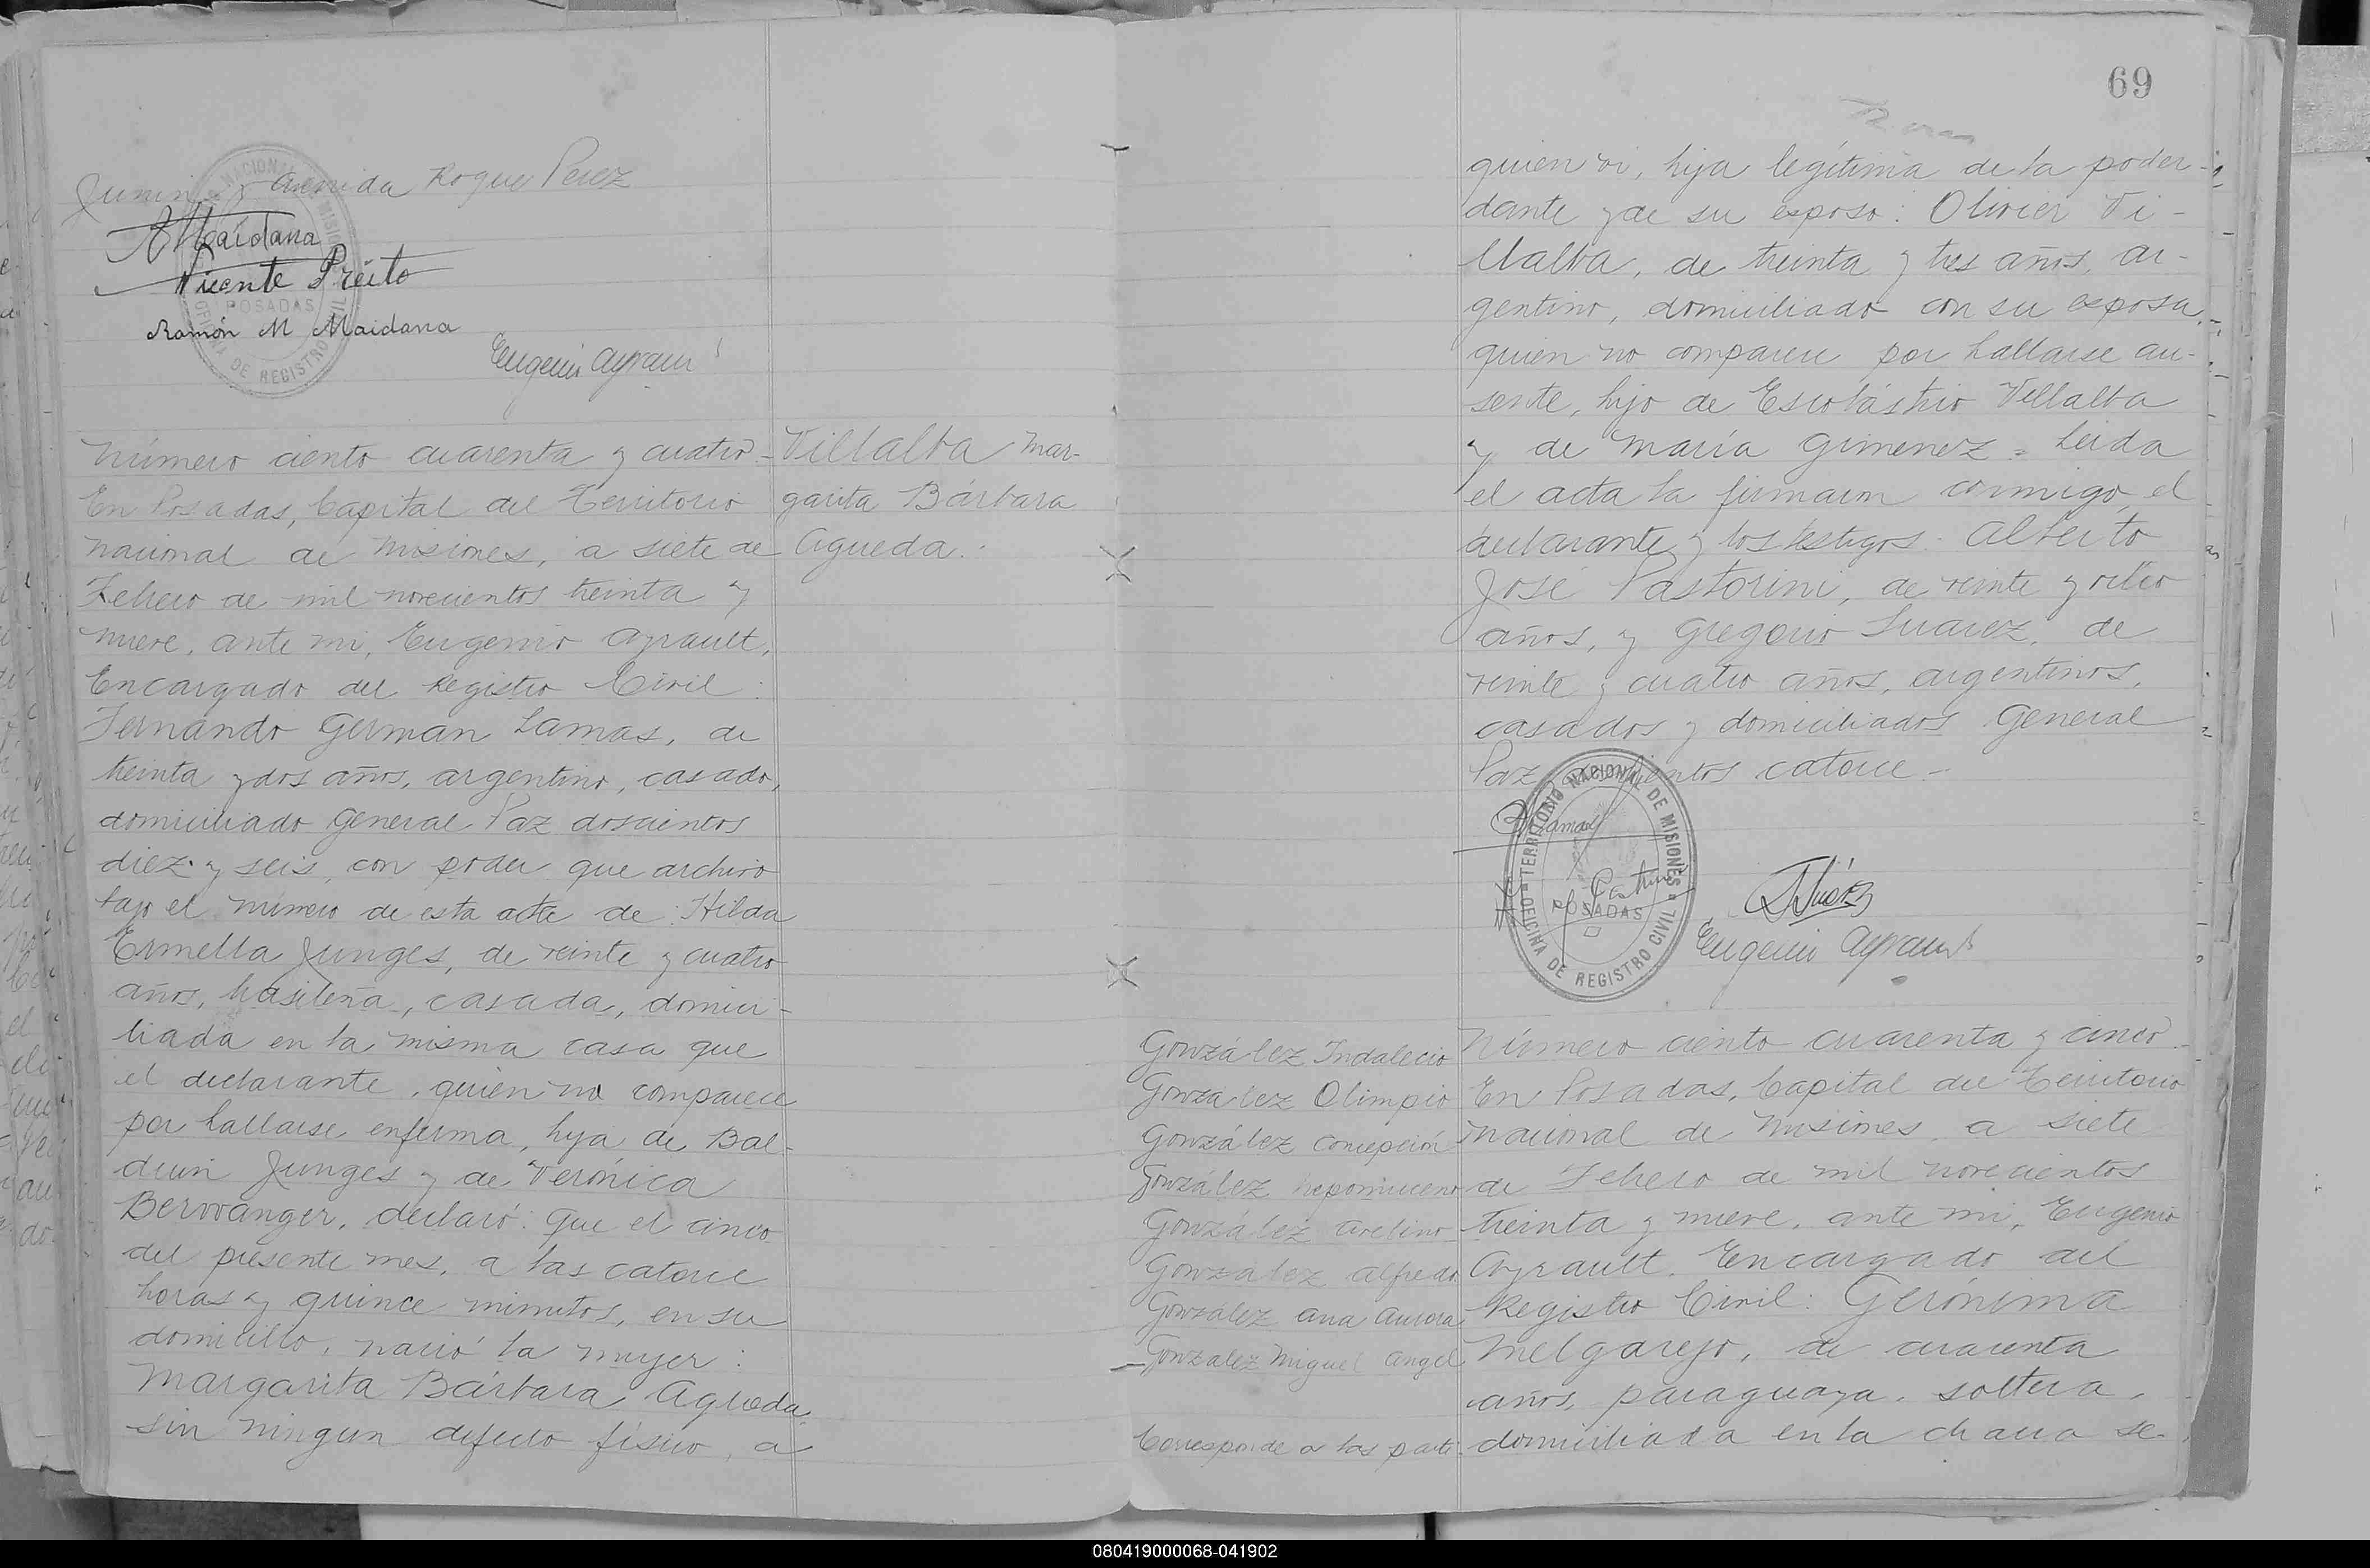 Junin y Avenida Roque Perez
AMaidana
Vicente Preito
Ramón M Maidana
Eugenio Ayrault
POSADAS
OFICINA DE REGISTRO CIVIL
Número ciento cuarenta y cuatro-
En Posadas, Capital del Territorio
Nacional de Misiones, a siete de
Febrero de mil novecientos treinta y
nueve, ante mi, Eugenio Ayrault,
Encargado del Registro Civil:
Fernando German Lamas, de
treinta y dos años, argentino, casado,
domiciliado General Paz doscientos
diez y seis, con poder que archivo
bajo el número de esta acta de: Hilda
Ermella Junges, de veinte y cuatro
años, brasileña, casada, domici-
liada en la misma casa que
el declarante, quien no comparece
por hallarse enferma, hija de Bal-
duin Junges y de Verónica
Berwanger, declaró: Que el cinco
del presente mes, a las catorce
horas y quince minutos, en su
domicilio, nació la mujer:
Margarita Bárbara Agueda
sin ningun defecto físico, a
Villalba Mar-
garita Bárbara
Agueda.
69
quien vi, hija legítima de la poder-
dante y de su esposo: Olivier Vi-
llalba, de treinta y tres años, ar-
gentino, domiciliado con su esposa,
quien no comparece por hallarse au-
sente, hijo de Escolástico Villalba
y de María Gimenez = Leida
el acta la firmaron conmigo, el
declarante y los testigos: Alberto
José Pastorini, de veinte y ocho
años, y Gregorio Suarez, de
veinte y cuatro años, argentinos,
casados y domiciliados General
Paz catorce -
TERRITORIO NACIONAL DE MISIONES
POSADAS
OFICINA DE REGISTRO CIVIL
Eugenio Ayrault
González Indalecio
González Olimpio
González Concepción
González Nepomuceno
González Avelino
González Alfredo
González Ana Aurora
González Miguel Angel
Corresponde a las parti-
Número ciento cuarenta y cinco-
En Posadas, Capital del Territorio
Nacional de Misiones, a siete
de Febrero de mil novecientos
treinta y nueve, ante mi, Eugenio
Ayrault, Encargado del
Registro Civil: Gerónima
Melgarejo, de cuarenta
años, paraguaya, soltera,
domiciliada en la chacra se-
080419000068-041902